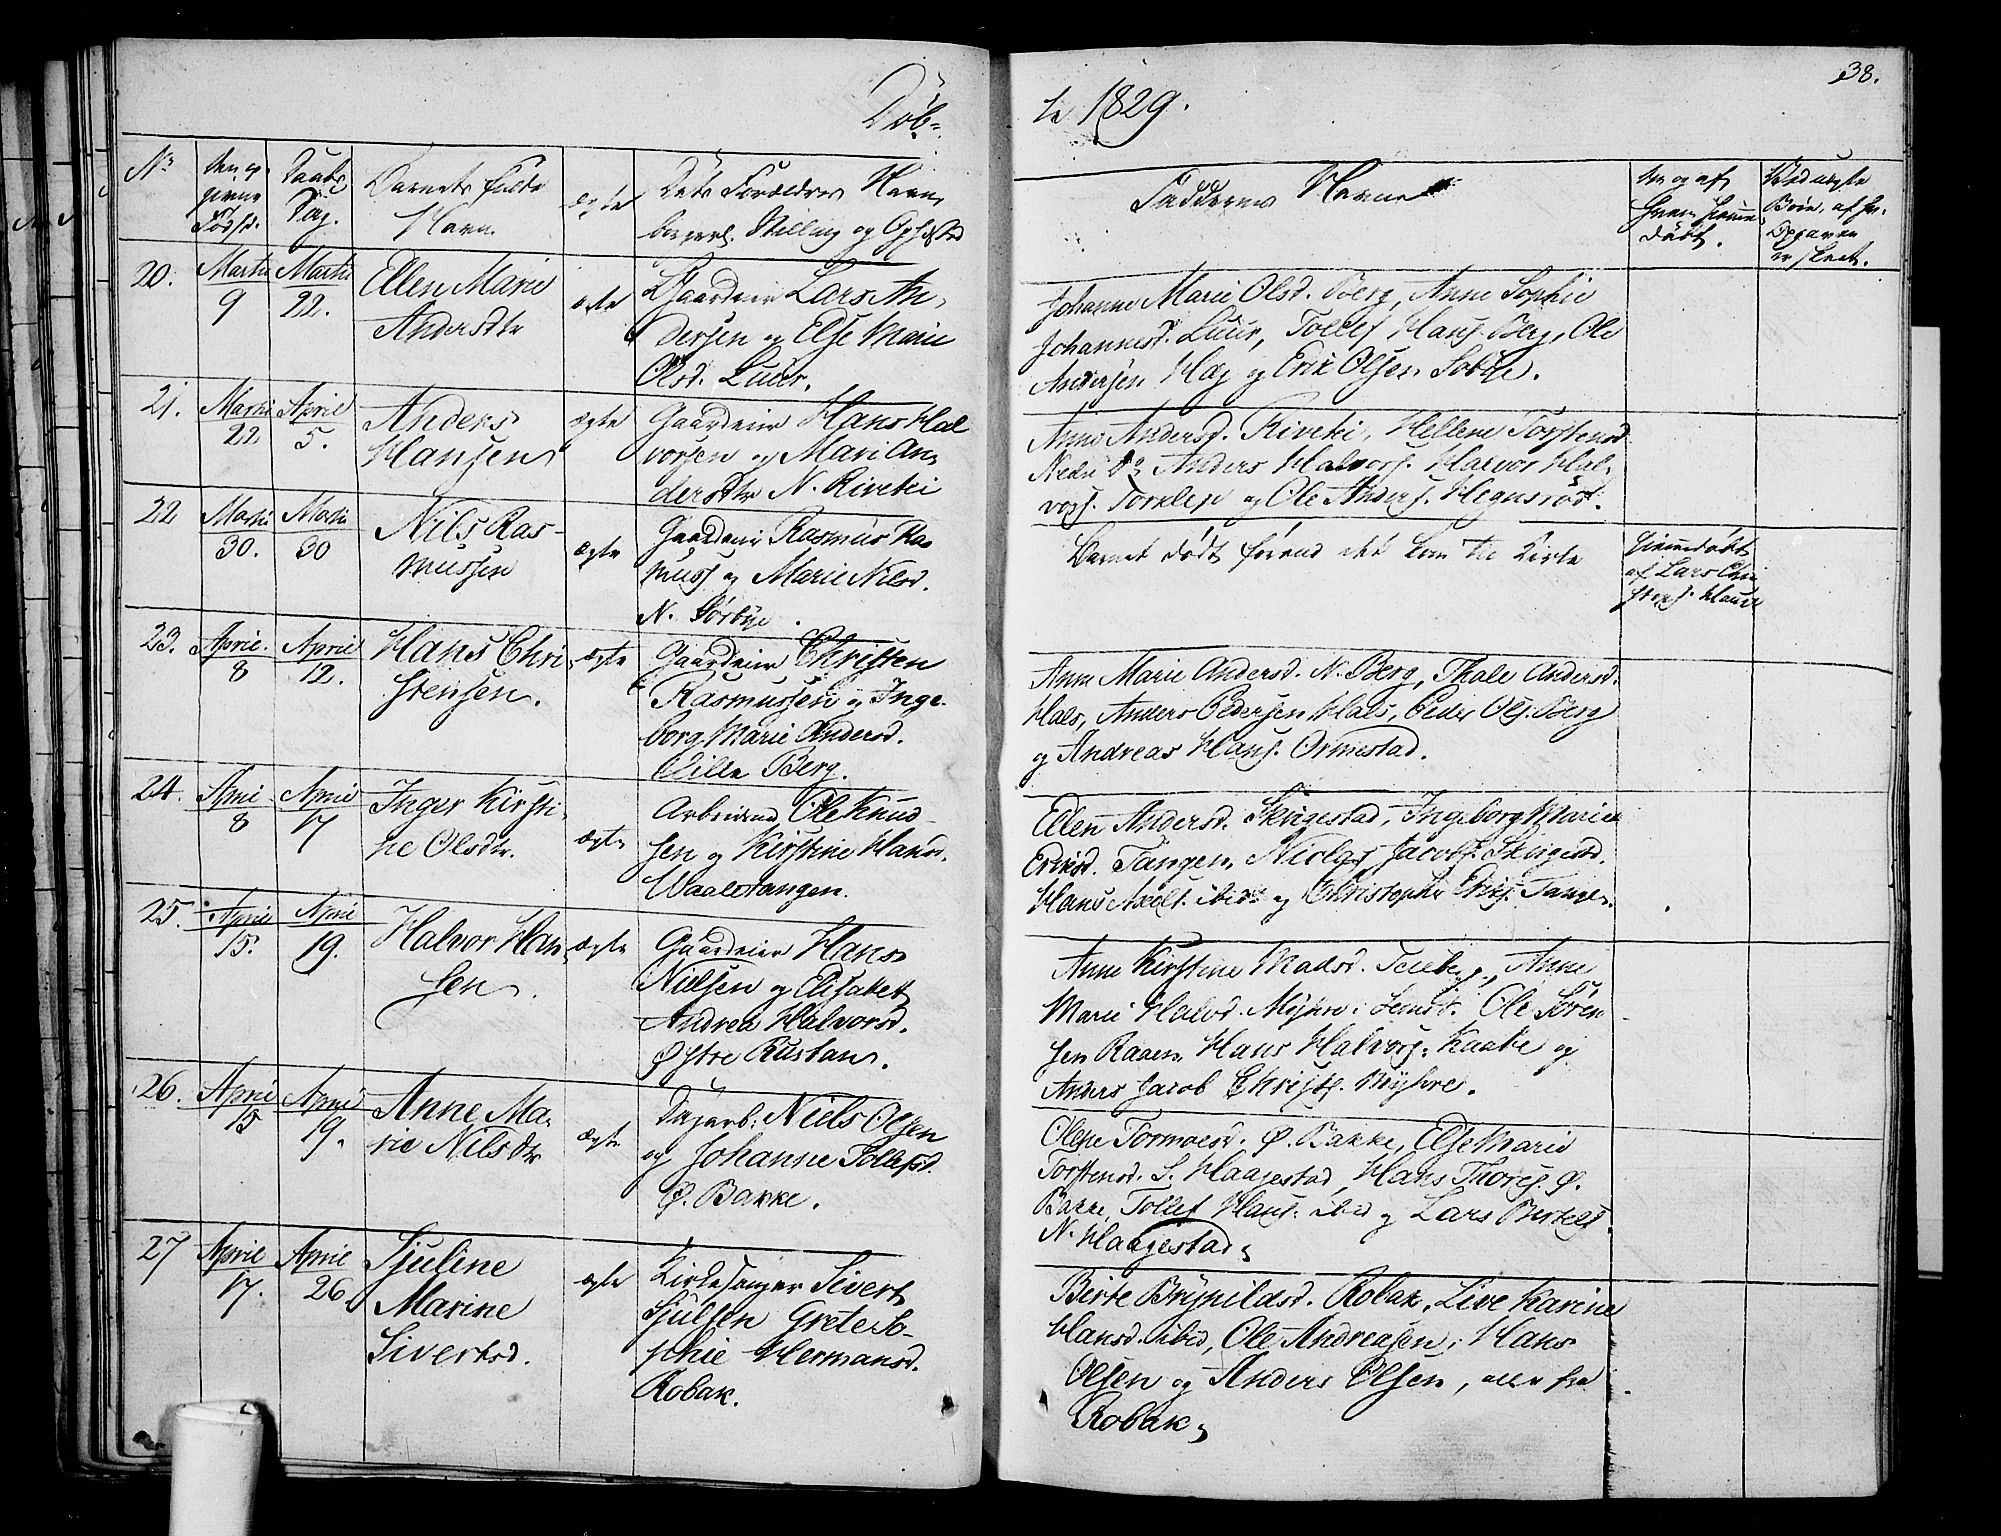 38.
Døb=
te 1829.
No
Daabs
Dag.
Barnets fulde
Navn
ægte
Dets Forældres Navn,
borgerl. Stilling og Opholdsted
Faddernes Navne
20.
Martii
9
Martii
22.
Ellen Marie
Andersdtr
ægte
Gaardeier Lars An,
dersen og Else Marie
Olsd. Luur.
Johanne Marie Olsd. Berg, Anne Sophie
Johannesd. Luur, Tollef Hans. Berg, Ole
Andersen Hag og Erik Olsen Sobye.
21.
Martii
22
April
5.
Anders
Hansen
ægte
Gaardeier Hans Hal
vorsen og Mari An,
dersdtr N. Riveki
Anne Andersd. Riveki, Hellene Torstensd
Nedre do Anders Halvors. Halvor Hal,
vors. Torklep og Ole Anders. Hegnsrød.
22
Martii
30.
Martii
30
Nils Ras-
mussen
ægte
Gaardeier Rasmus Ras
muss og Marie Nilsd.
N. Sørbye.
Barnet dødt førend det kom til Kirke
Hiemmedøbt
af Lars Chri
stens. Hauge
23.
April.
8
April
12.
Hans Chri
stensen.
ægte
Gaardeier Christen
Rasmussen og Inge-
borg Marie Andersd.
Lille Berg.
Anne Marie Andersd. N. Berg, Thale Andersd.
Hals, Anders Pedersen Hals, Peder Ols. Berg
og Andreas Hans. Ormestad.
24.
April
8
April
17
Inger Kirsti,
ne Olsdtr.
ægte
Arbeidsmd. Ole Knud-
sen og Kirstine Hansd.
Waalstangen.
Ellen Andersd. Skrigestad, Ingeborg Marie
Eriksd. Tangen, Niclas Jacobs. Skrigestd.
Hans Axels. ibid og Christopher Eriks. Tangen.
25.
April
15.
April
19.
Halvor Han
sen.
ægte
Gaardeier Hans
Nielsen og Elisabet
Andrea Halvorsd.
Østre Rustan.
Anne Kirstine Madsd. Teieberg, Anne
Marie Halvd. Myhre i Ole Søren
sen Raaen, Hans Halvors. Kaabe og
Anders Jacob Christs. Myhre.
26.
April
15
April
19.
Anne Ma,
rie Nilsdtr
ægte
Dagarb: Niels Olsen
og Johanne Tollefsd.
Ø. Bakke.
Olene Tormoesd. Ø. Bakke, Else Marie
Torstensd. S. Haagestad, Hans Thores. Ø.
Bakke, Tollef Hans. ibid og Lars Bertels.
N. Haagestad.
27
April
17.
April
26
Sjuline
Marine
Sivertsd.
ægte
Kirkesanger Sivert
Sjulsen Grete So-
phie Hermansd.
Robak.
Birte Brynildsd. Robak, Live Karine
Hansd. ibid, Ole Andreasen, Hans
Olsen og Anders Olsen, alle fra
Robak